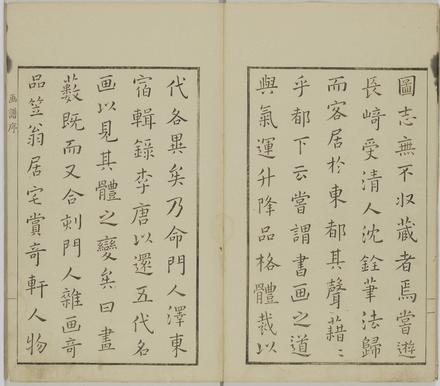 圖志無不収藏者焉嘗遊
長崎受清人沈銓筆法歸
而客居於東都其聲藉〻
乎都下云嘗謂書画之道
與氣運升降品格體裁以
代各異矣乃命門人澤東
宿輯錄李唐以還五代名
画以見其體之變矣曰畫
藪既而又合刻門人雜画竒
品笠翁居宅賞竒軒人物
画譜序